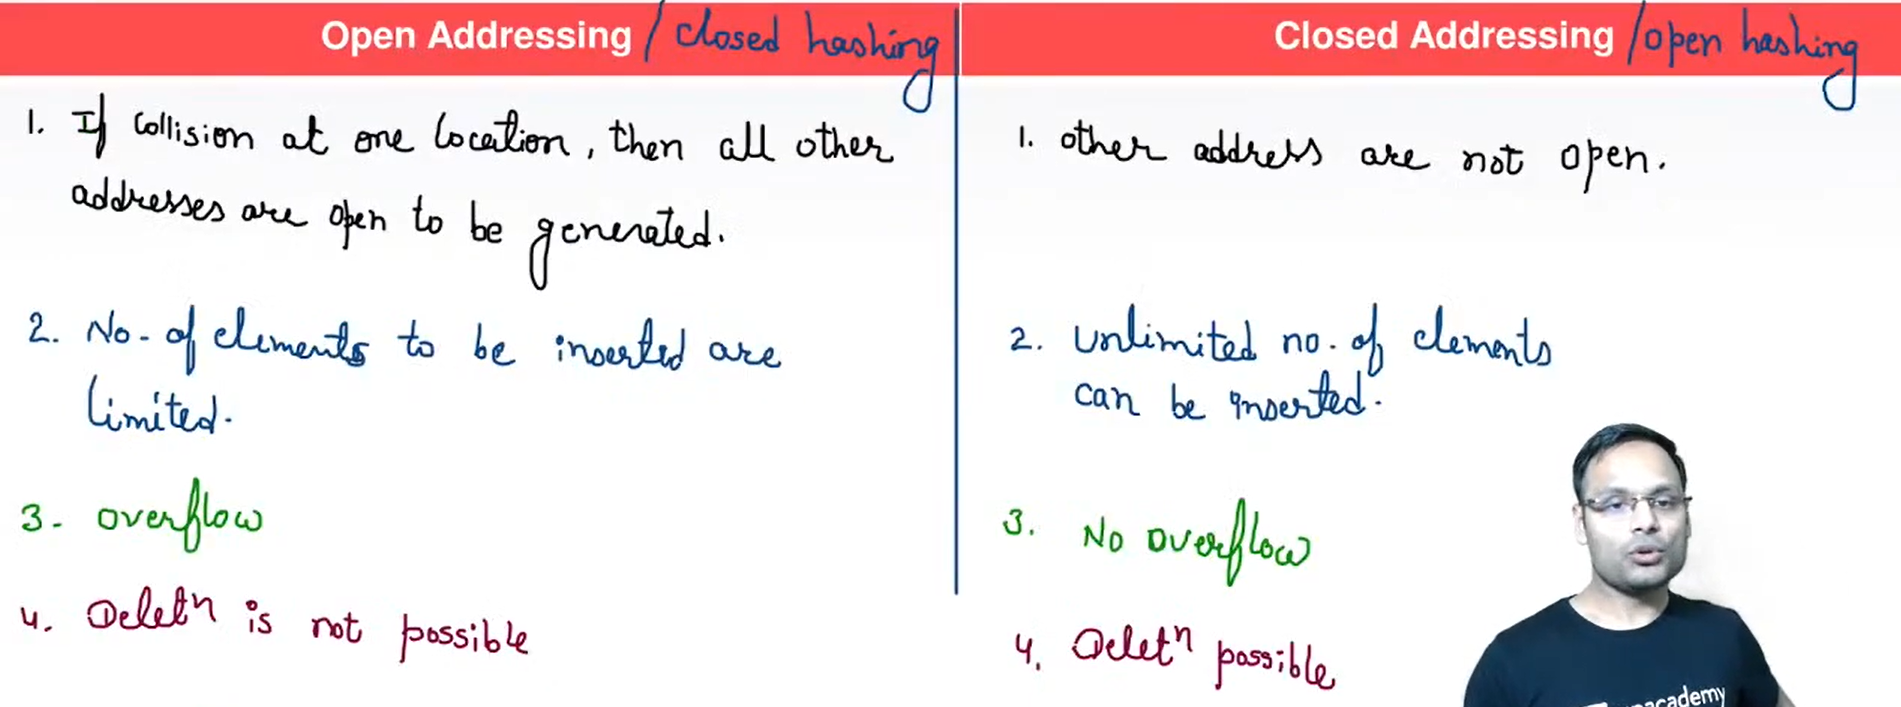 Open Addressing / closed hashing
1. If collision at one location, then all other
addresses are open to be generated.
2. No. of elements to be inserted are
limited.
3. overflow
4. Deletⁿ is not possible
Closed Addressing / open hashing
1. other address are not open.
2. unlimited no. of elements
can be inserted.
3. No overflow
4. Deletⁿ possible